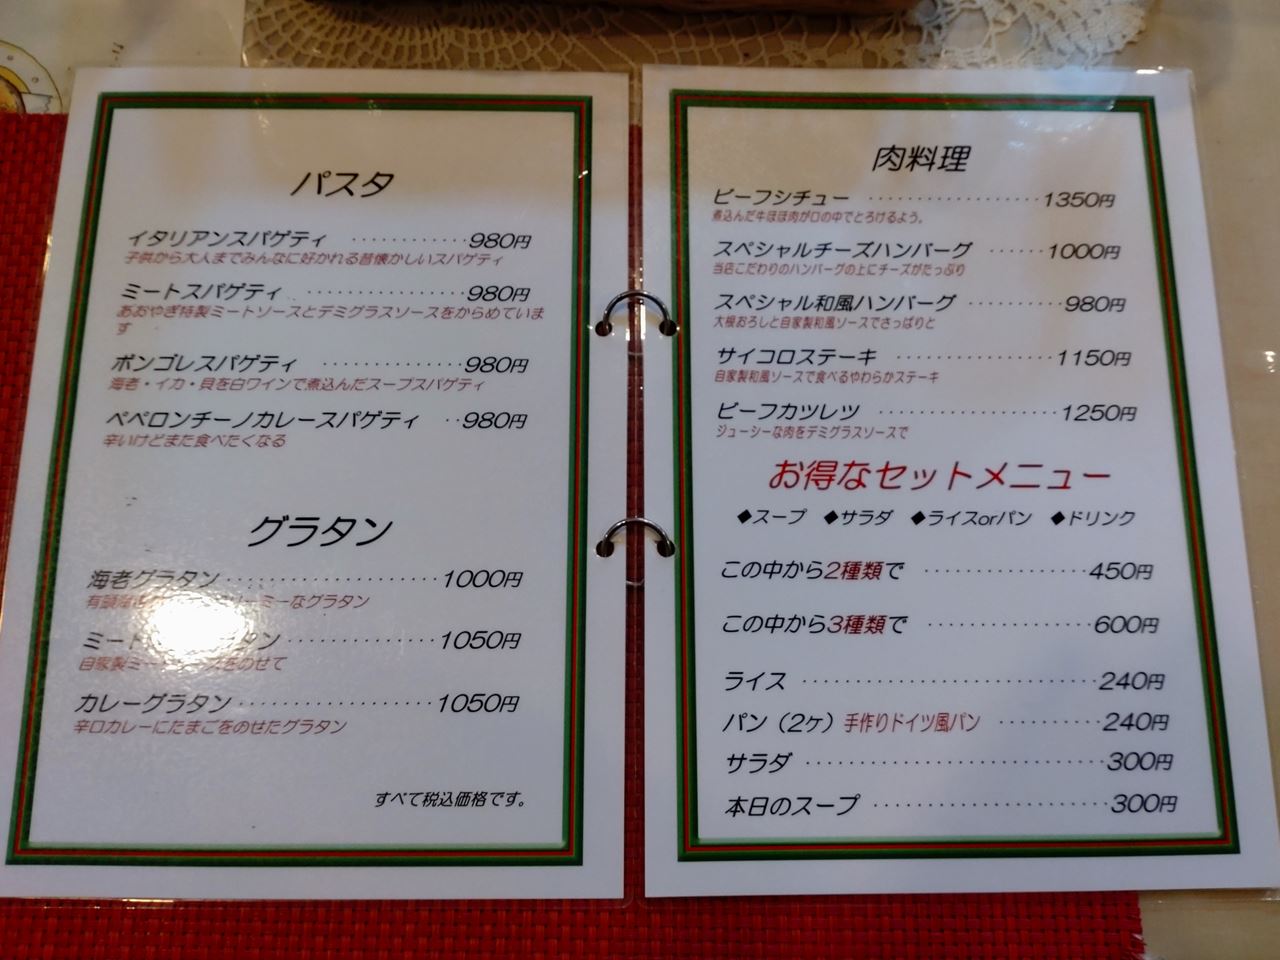 パスタ
イタリアンスパゲティ ············980円
子供から大人までみんなに好かれる昔懐かしいスパゲティ
ミートスパゲティ ·················980円
あおやぎ特製ミートソースとデミグラスソースをからめていま
す
ボンゴレスパゲティ ···············980円
海老・イカ・貝を白ワインで煮込んだスープスパゲティ
ペペロンチーノカレースパゲティ ··980円
辛いけどまた食べたくなる
グラタン
海老グラタン·······················1000円
有頭海老 リーミーなグラタン
ミート タン················1050円
自家製ミートソースをのせて
カレーグラタン······················1050円
辛口カレーにたまごをのせたグラタン
すべて税込価格です。
肉料理
ビーフシチュー ···················1350円
煮込んだ牛ほほ肉が口の中でとろけるよう。
スペシャルチーズハンバーグ ······1000円
当店こだわりのハンバーグの上にチーズがたっぷり
スペシャル和風ハンバーグ ··········980円
大根おろしと自家製和風ソースでさっぱりと
サイコロステーキ ·················1150円
自家製和風ソースで食べるやわらかステーキ
ビーフカツレツ ···················1250円
ジューシーな肉をデミグラスソースで
お得なセットメニュー
◆スープ ◆サラダ ◆ライスorパン ◆ドリンク
この中から2種類で ·················450円
この中から3種類で ·················600円
ライス ································240円
パン（2ケ）手作りドイツ風パン ··········240円
サラダ ································300円
本日のスープ ·························300円